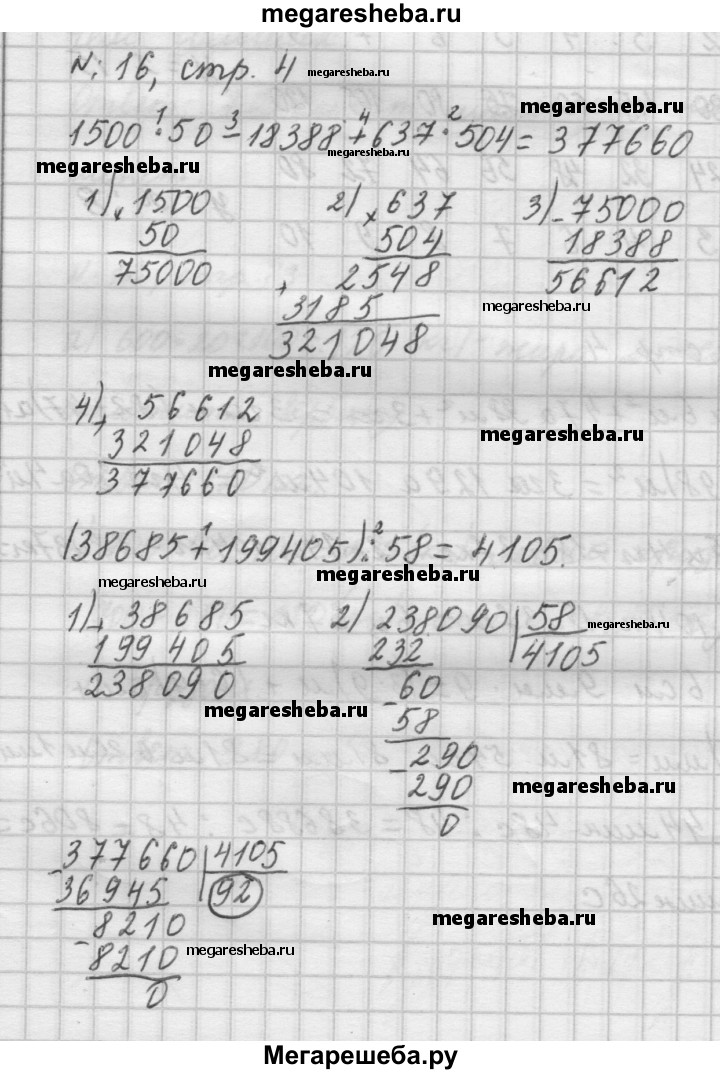 megaresheba.ru
N: 16, стр. 4 megaresheba.ru
megaresheba.ru
1 3 4 2
1500 · 50 - 18388 + 637 · 504 = 377660
megaresheba.ru megaresheba.ru
1) × 1500 2) × 637 3) - 75000
50 504 18388
75000 2548 56612
+ 3185 megaresheba.ru
321048
megaresheba.ru
4) + 56612
321048 megaresheba.ru
377660
1 2
(38685 + 199405) : 58 = 4105.
megaresheba.ru megaresheba.ru
1) + 38685 2) 238090 58 megaresheba.ru
199405 232 4105
238090 - 60
megaresheba.ru 58
- 290
290 megaresheba.ru
0
- 377660 4105
36945 92
- 8210 megaresheba.ru
8210 megaresheba.ru
0
Мегарешеба.ру